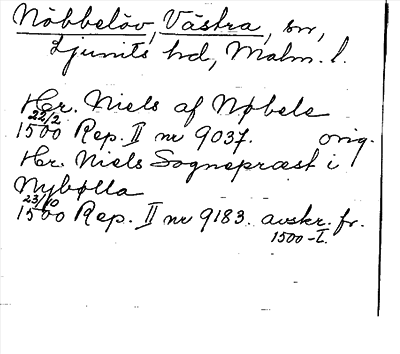 Nöbbelöv, Västra, sn,
Ljunits hd, Malm. l.
Hr. Niels af Nøbele
22/2
1500 Rep. II nr 9037. orig.
Hr. Niels Sognepræst i
Nybølla
23/10
1500 Rep. II nr 9183. avskr. fr.
1500-t.